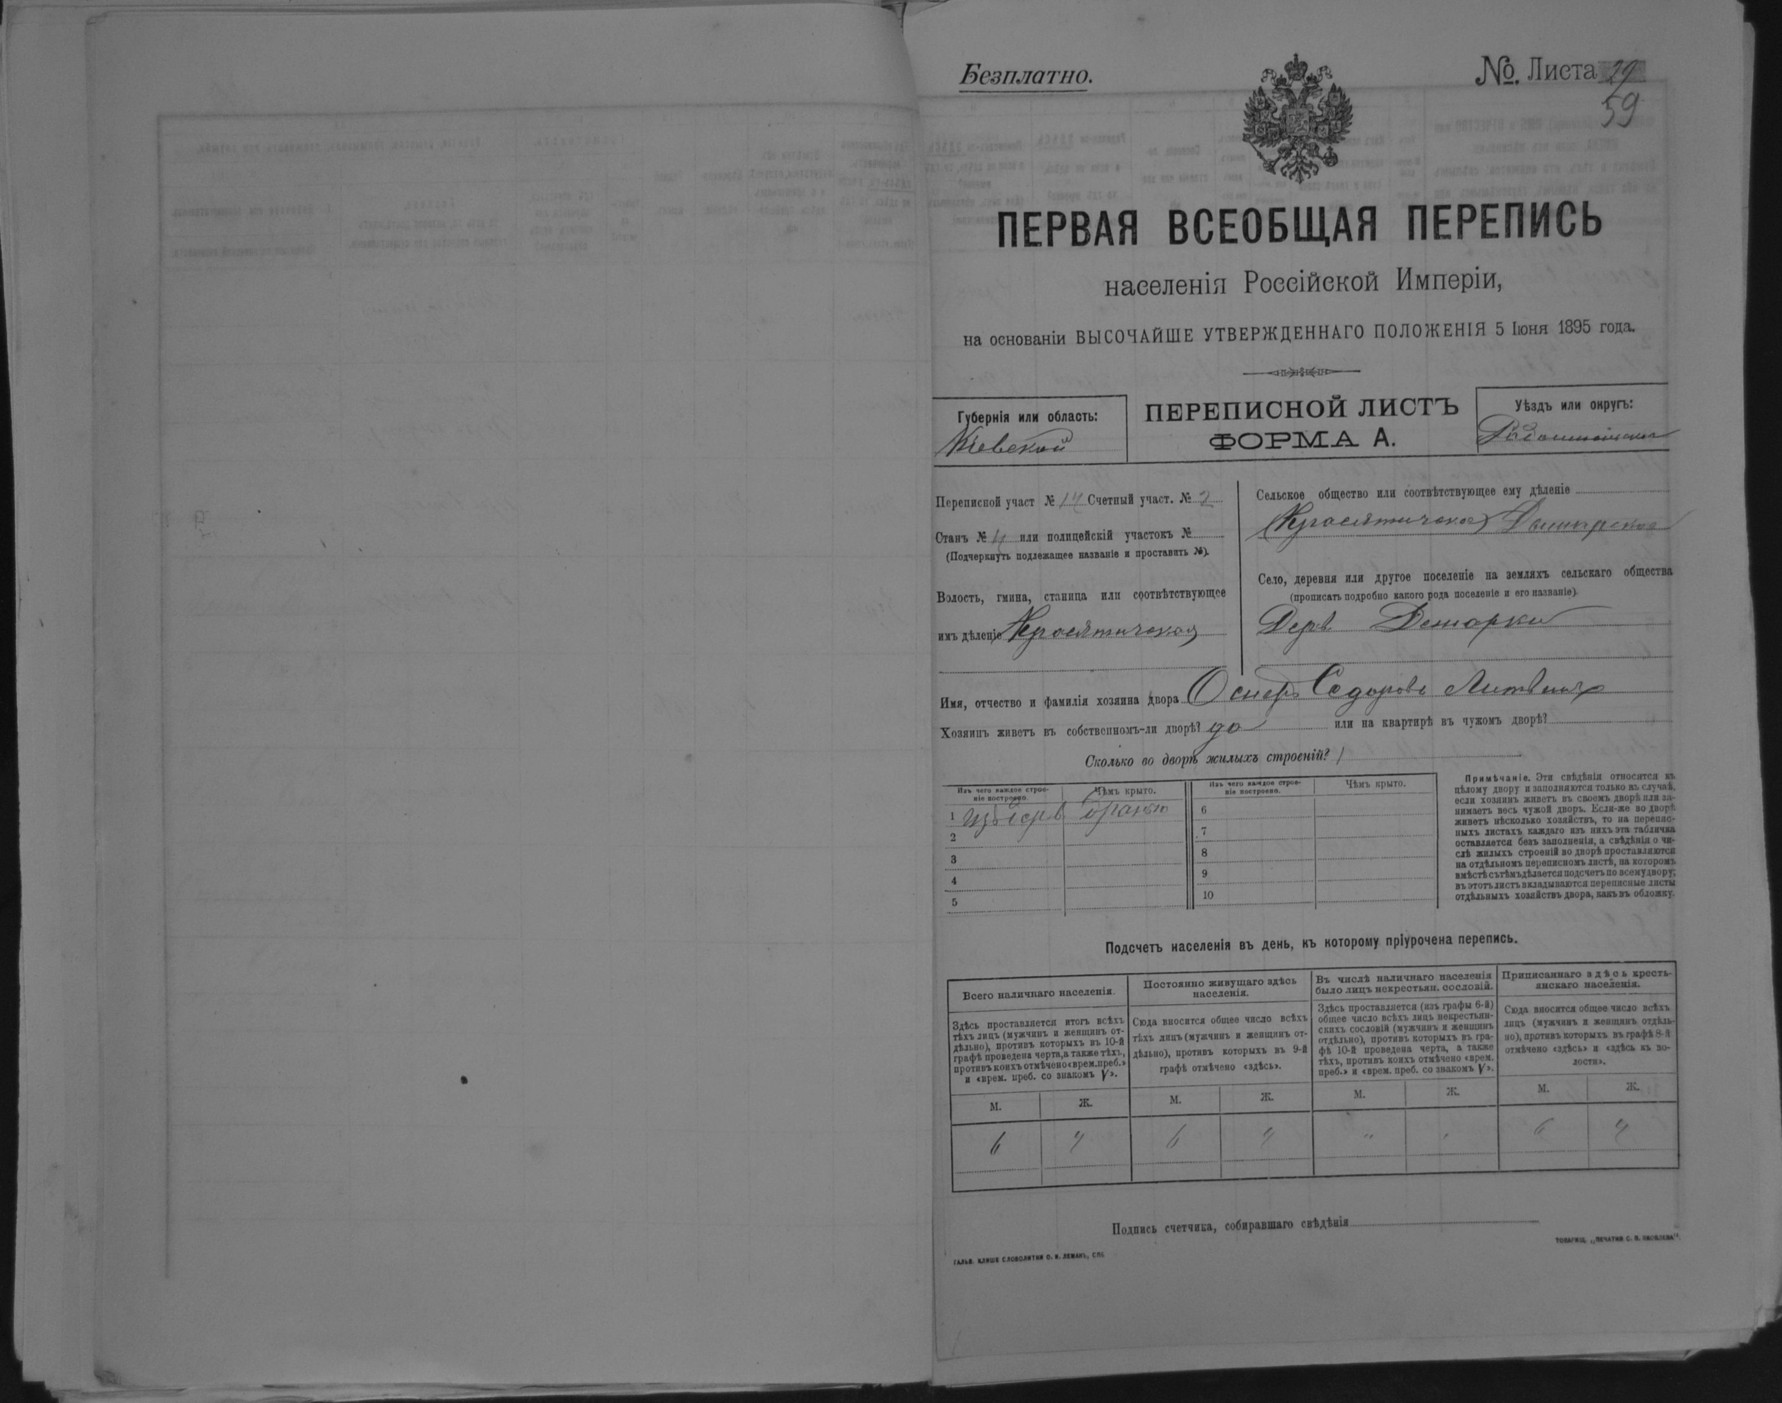 Безплатно.
№. Листа 29
59
ПЕРВАЯ ВСЕОБЩАЯ ПЕРЕПИСЬ
населенія Россійской Имперіи,
на основаніи ВЫСОЧАЙШЕ УТВЕРЖДЕННАГО ПОЛОЖЕНІЯ 5 Іюня 1895 года.
Губернія или область:
Кіевской
ПЕРЕПИСНОЙ ЛИСТЪ
ФОРМА А.
Уѣздъ или округъ:
Переписной участ № 14 Счетный участ. № 2
Станъ № 4 или полицейскій участокъ №
(Подчеркнуть подлежащее названіе и проставить №).
Волость, гмина, станица или соотвѣтствующее
имъ дѣленіе Красятическая
Сельское общество или соотвѣтствующее ему дѣленіе
Село, деревня или другое поселеніе на земляхъ сельскаго общества
(прописать подробно какого рода поселеніе и его названіе).
Дерв.
Имя, отчество и фамилія хозяина двора Седоровъ Литвинъ
Хозяинъ живетъ въ собственномъ-ли дворѣ? да или на квартирѣ въ чужомъ дворѣ?
Сколько во дворѣ жилыхъ строеній? 1
Изъ чего каждое строе-
ніе построено.
Чѣмъ крыто.
Изъ чего каждое строе-
ніе построено.
Чѣмъ крыто.
1
2
3
4
5
6
7
8
9
10
Примѣчаніе. Эти свѣдѣнія относятся къ
цѣлому двору и заполняются только въ случаѣ,
если хозяинъ живетъ въ своемъ дворѣ или за-
нимаетъ весь чужой дворъ. Если-же во дворѣ
живетъ нѣсколько хозяйствъ, то на перепис-
ныхъ листахъ каждаго изъ нихъ эта табличка
оставляется безъ заполненія, а свѣдѣнія о чи-
слѣ жилыхъ строеній во дворѣ проставляются
на отдѣльномъ переписномъ листѣ, на которомъ
вмѣстѣ съ тѣмъ дѣлается подсчетъ по всему двору;
въ этотъ листъ вкладываются переписные листы
отдѣльныхъ хозяйствъ двора, какъ въ обложку.
Подсчетъ населенія въ день, къ которому пріурочена перепись.
Всего наличнаго населенія.
Здѣсь проставляется итогъ всѣхъ
тѣхъ лицъ (мужчинъ и женщинъ от-
дѣльно), противъ которыхъ въ 10-й
графѣ проведена черта, а также тѣхъ,
противъ коихъ отмѣчено «врем. преб.»
и «врем. преб. со знакомъ V».
Постоянно живущаго здѣсь
населенія.
Сюда вносится общее число всѣхъ
тѣхъ лицъ (мужчинъ и женщинъ от-
дѣльно), противъ которыхъ въ 9-й
графѣ отмѣчено «здѣсь».
Въ числѣ наличнаго населенія
было лицъ некрестьян. сословій.
Здѣсь проставляется (изъ графы 6-й)
общее число всѣхъ лицъ некрестьян-
скихъ сословій (мужчинъ и женщинъ
отдѣльно), противъ которыхъ въ гра-
фѣ 10-й проведена черта, а также
тѣхъ, противъ коихъ отмѣчено «врем.
преб.» и «врем. преб. со знакомъ V».
Приписаннаго здѣсь кресть-
янскаго населенія.
Сюда вносится общее число всѣхъ
лицъ (мужчинъ и женщинъ отдѣль-
но), противъ которыхъ въ графѣ 8-й
отмѣчено «здѣсь» и «здѣсь къ во-
лости».
М. Ж. М. Ж. М. Ж. М. Ж.
6 6 " " 6
Подпись счетчика, собиравшаго свѣдѣнія
ГАЛЬВ. КЛИШЕ СЛОВОЛИТНИ О. И. ЛЕМАНЪ, СПБ.
ТОВАРИЩ. „ПЕЧАТНЯ С. П. ЯКОВЛЕВА".